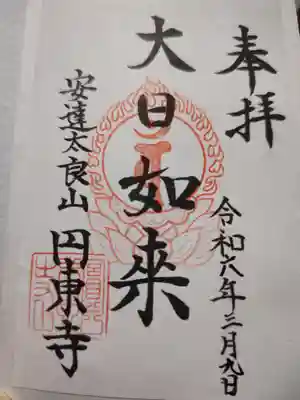 奉拝
令和六年三月九日
大日如来
安達太良山
円東寺